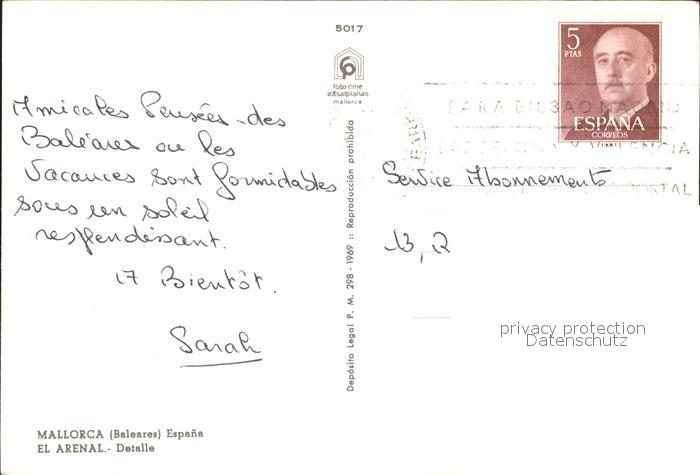 5017
foto-cine
casalplanas
mallorca
Amicales Pensées des
Baléares ou les
Vacances sont formidables
sous un soleil
resplendissant.
A Bientôt.
Sarah
MALLORCA (Baleares) España
EL ARENAL.- Detalle
Depósito Legal P. M. 298 - 1969 :: Reproducción prohibida
5
PTAS
ESPAÑA
CORREOS
PARA BILBAO MADRID
BARCELONA Y VALENCIA
POSTAL
Service Abonnements
13, R
privacy protection
Datenschutz